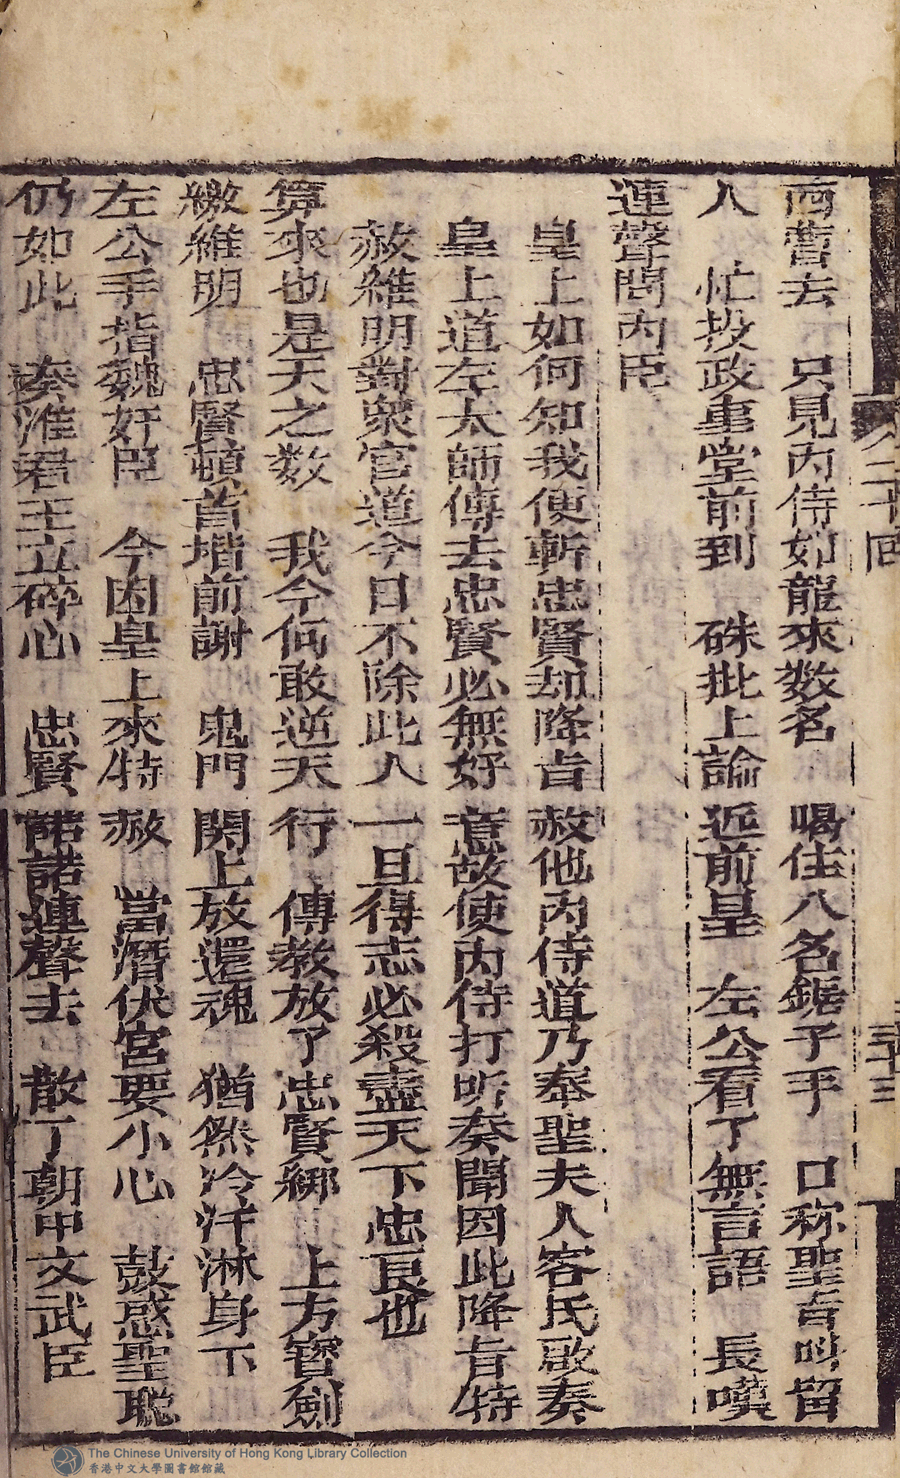 商營去　只見内侍如龍來数名　喝住八名鋸子手　口称聖㫖呌留
人　忙投政事堂前到　硃批上諭近前呈　左公看了無言語　長嘆
連聲問内臣
皇上如何知我便斬忠賢却降㫖赦他内侍道乃奉聖夫人客氏啟奏
皇上道左太師傳去忠賢必無好意故使内侍打听奏聞因此降㫖特
赦維明對衆官道今日不除此人一旦得志必殺盡天下忠良也
算來也是天之数　我今何敢逆天行　傳教放了忠賢綁　上方寳劍
繳維明　忠賢頓首堦前謝　鬼門関上放還魂　猶然冷汗淋身下
左公手指魏奸臣　今因皇上來特赦　當潛伏宮要小心　鼓惑聖聦
仍如此　奏准君王立碎心　忠賢諾諾連聲去　散了朝中文武臣
二十回
三十三
The Chinese University of Hong Kong Library Collection
香港中文大學圖書館館藏